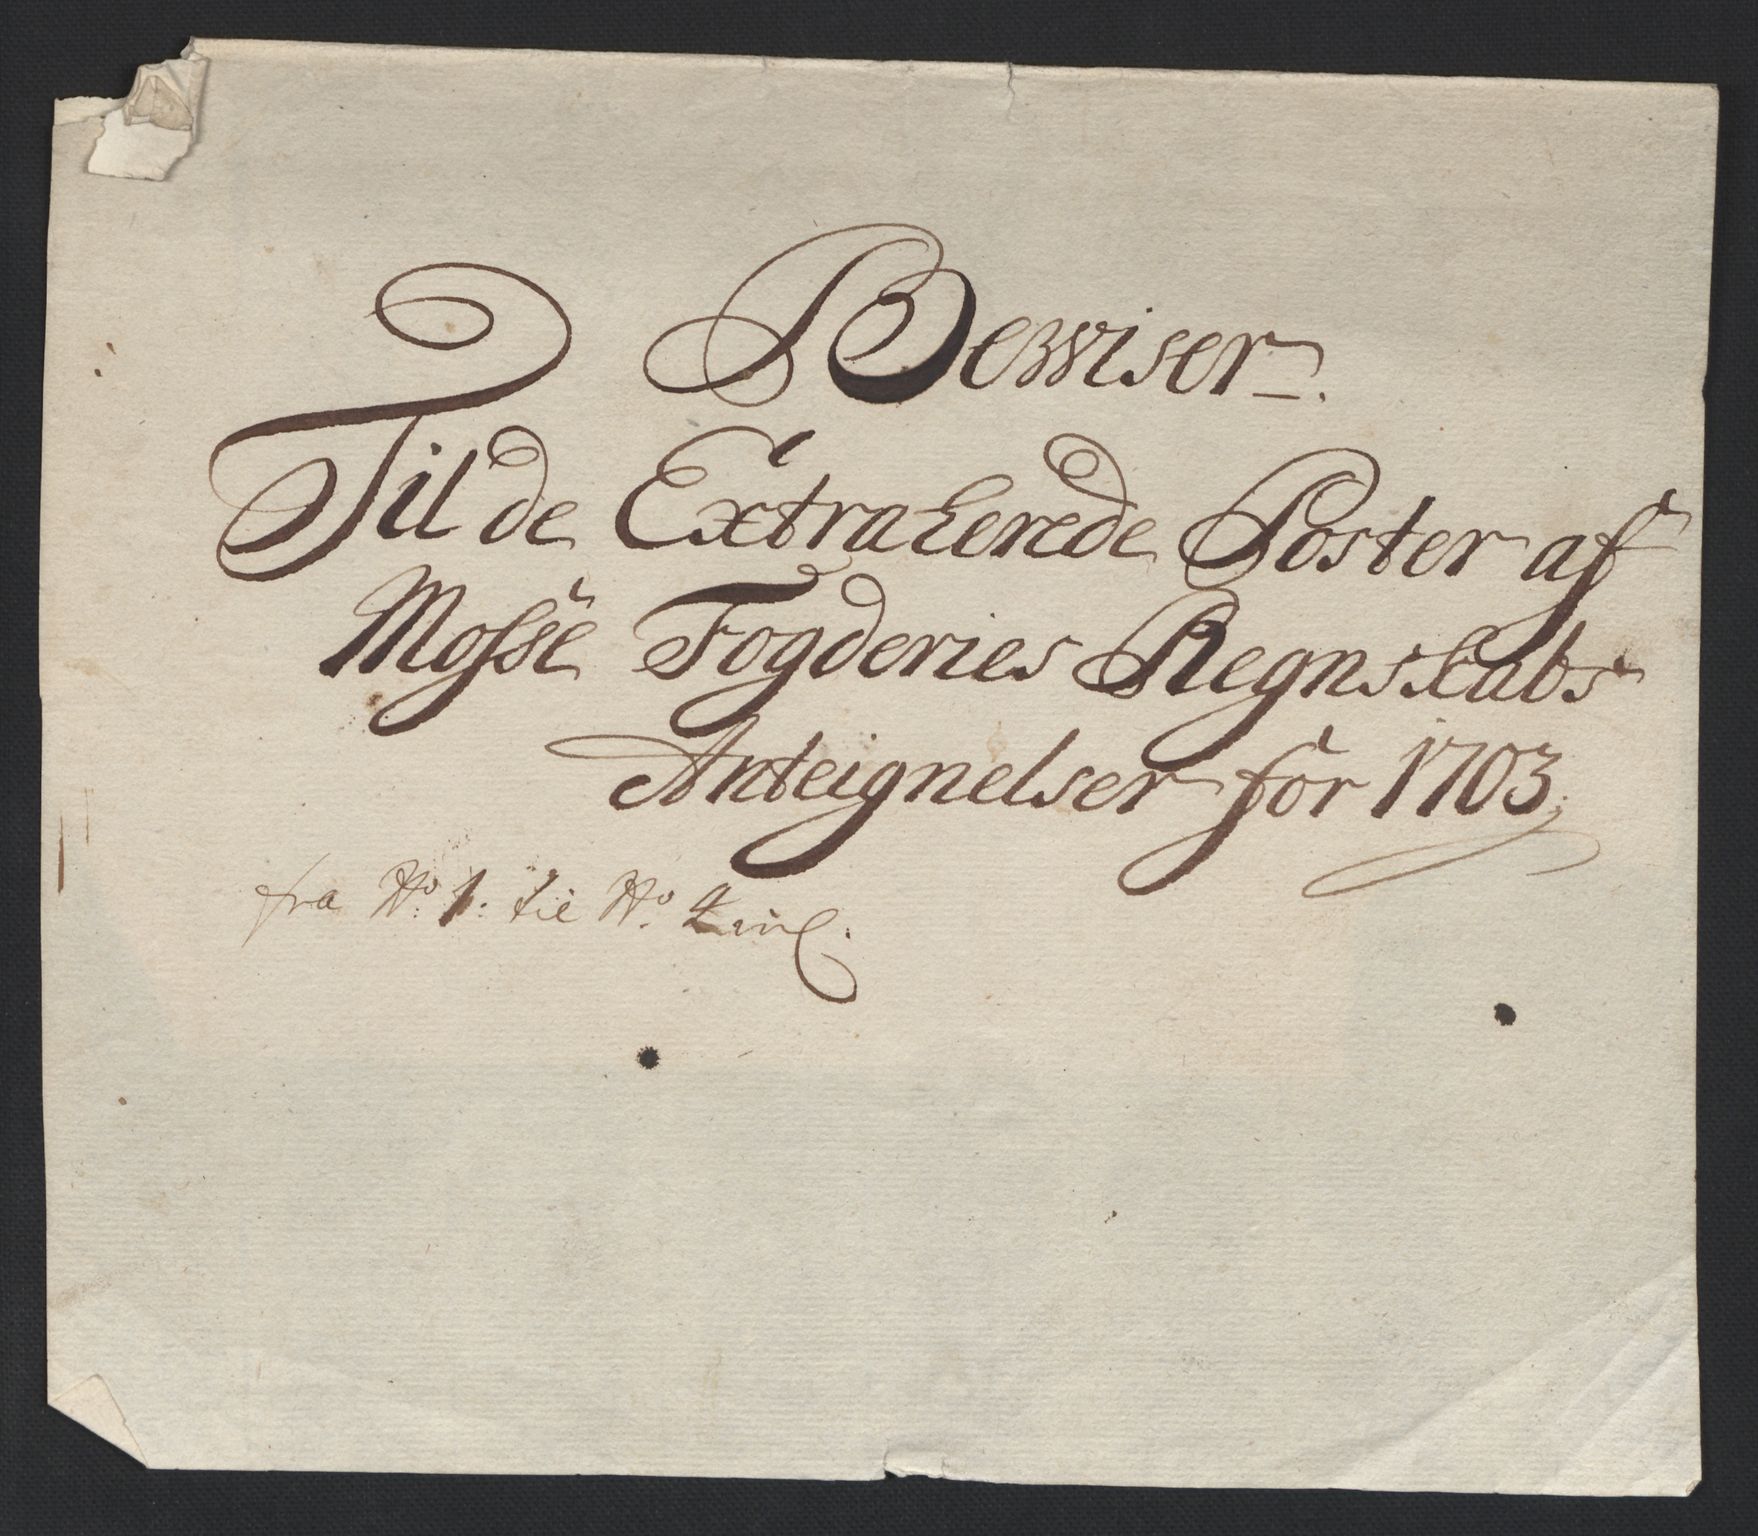 Bewiser.
Til de Extraherede Poster af
Mosse Fogderies Regnskabs
Anteignelser for 1703,
fra No. 1. til No. 4 incl.